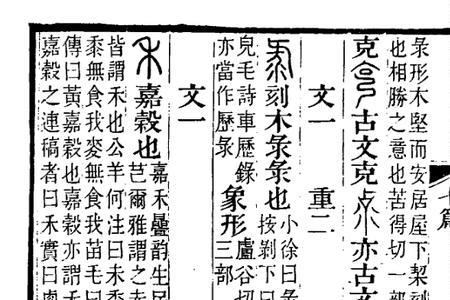 彔形木堅而安居屋下契刻
也相勝之意也苦得切一部
克古文克亦古文
文一 重二
刻木彔彔也 小徐曰彔
按剝下曰
皃毛詩車歷錄
亦當作歷彔
象形 盧谷切
三部
文一
嘉穀也 嘉禾疊韵生民
芑爾雅謂之赤
皆謂禾也公羊何注曰禾
黍無食我麥無食我苗毛曰
傳曰黃嘉穀也嘉穀亦謂禾
嘉穀之連稿者曰禾實曰
七篇